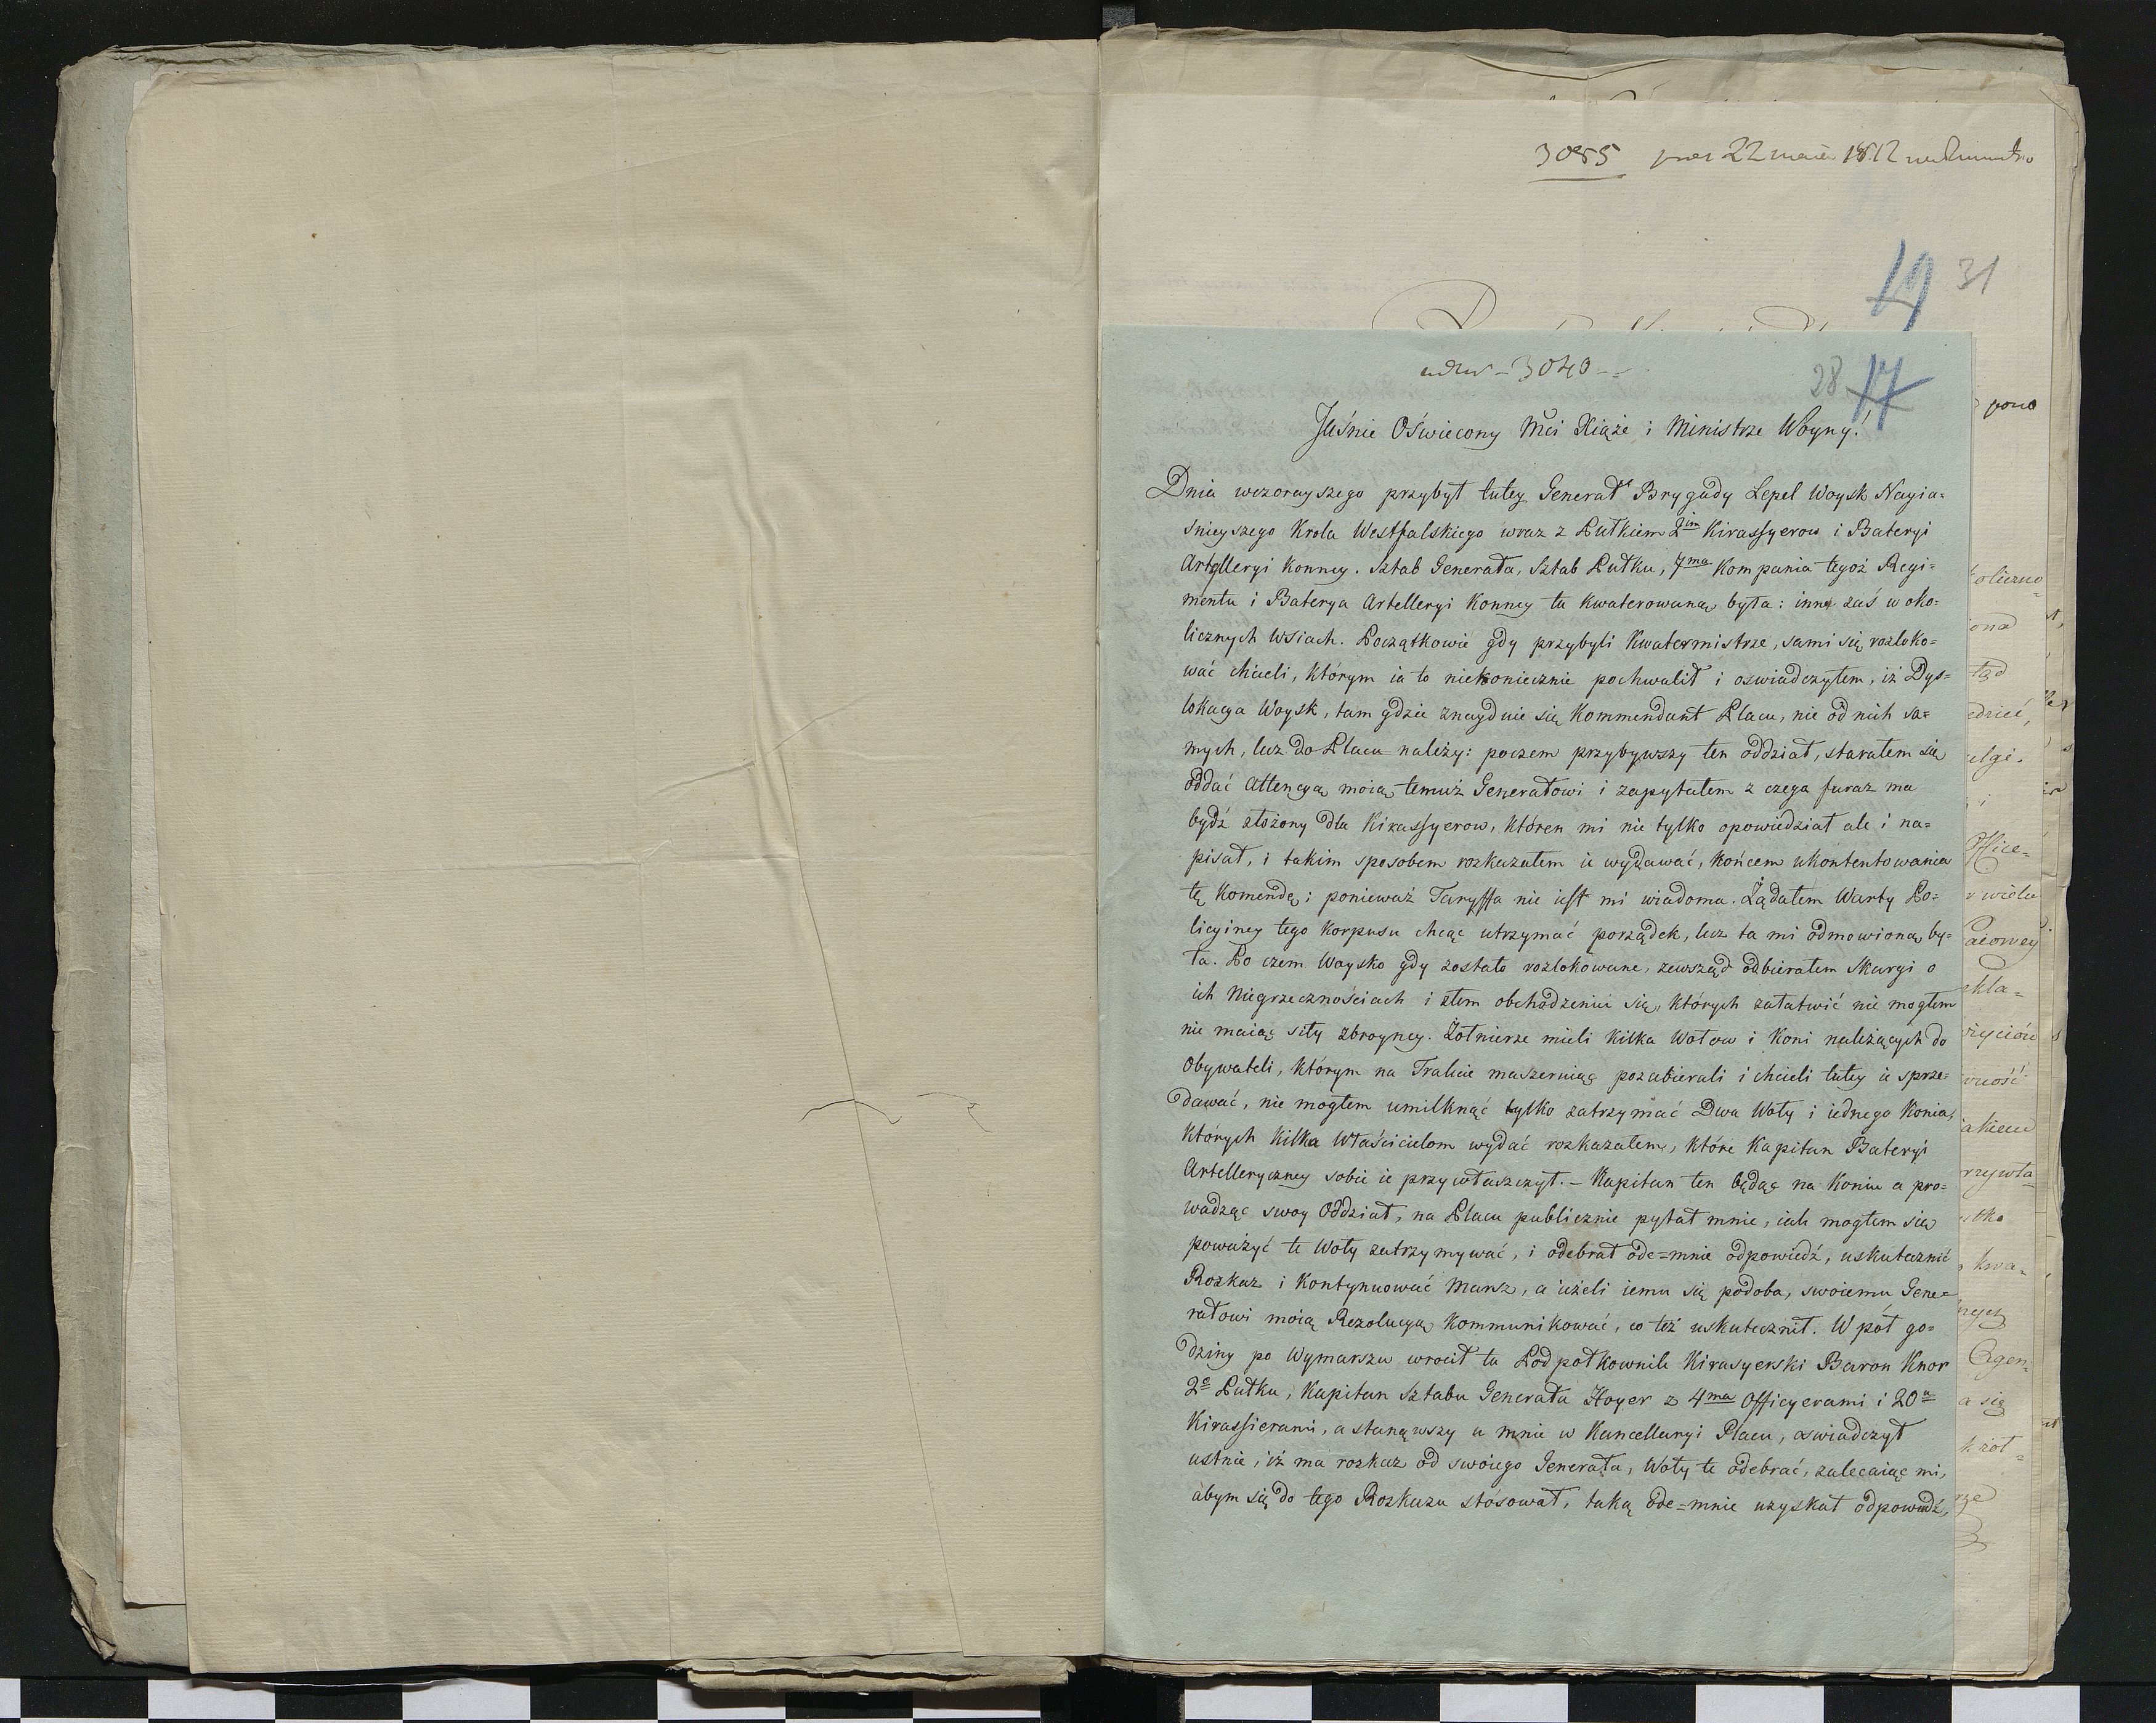 3085 22 1812
19 31
3040
28 17
pono
Jaśnie Oświecony Mci Xiąże i Ministrze Woyny!
Dnia wczorayszego przybył tutey Generał Brygady Lepel Woysk Nayia=
śnieyszego Krola Westfalskiego wraz z Pułkiem 2im Kirassyerow i Bateryi
Artylleryi Konney. Sztab Generała, Sztab Pułku, 7ma Kompania tegoż Regi=
mentu i Baterya Artelleryi Konney tu Kwaterowaną była: inne zaś w oko=
licznych Wsiach. Początkowie gdy przybyli Kwatermistrze, sami się rozloko=
wać chcieli, którym ia to niekoniecznie pochwalił i oswiadczyłem, iż Dys=
lokacya Woysk, tam gdzie znayduie się Kommendant Placu, nie od nich sa=
mych, lecz do Placu należy: poczem przybywszy ten oddział, starałem się
oddać Attencyą moią temuż Generałowi i zapytałem z czego furaz ma
bydź złożony dla Kirassyerow, któren mi nie tylko opowiedział ale i na=
pisał, i takim sposobem rozkazałem ie wydawać, Końcem ukontentowania
tę Komendę; ponieważ Taryffa nie iest mi wiadoma. Żądałem Warty Po=
licyiney tego Korpusu chcąc utrzymać porządek, lecz ta mi odmowioną by=
ła. Po czem Woysko gdy zostało rozlokowane, zewsząd odbierałem Skargi o
ich Niegrzecznościach i złem obchodzeniu się, których załatwić nie mogłem
nie maiąc siły zbroyney. Żołnierze mieli Kilka Wołow i Koni należących do
Obywateli, którym na Trakcie maszeruiąc pozabierali i chcieli tutey ie sprze=
dawać, nie mogłem umilknąć tylko zatrzymać Dwa Woły i iednego Konia,
których Kilka Właścicielom wydać rozkazałem, które Kapitan Bateryi
Artelleryczney sobie ie przywłaszczył. – Kapitan ten będąc na Koniu a pro=
wadząc swoy Oddział, na Placu publicznie pytał mnie, iak mogłem się
poważyć te Woły zatrzymywać, i odebrał ode=mnie odpowiedź, uskutecznić
Rozkaz i Kontynuować Marsz, a ieżeli iemu się podoba, swoiemu Gene=
rałowi moią Rezolucyą Kommunikować, co też uskutecznił. W pół go=
dziny po Wymarszu wrocił tu Podpołkownik Kirasyerski Baron Knor
2o Pułku, Kapitan Sztabu Generała Hoyer z 4ma Officyerami i 20u
Kirassierami, a stanąwszy u mnie w Kancellaryi Placu, oswiadczył
ustnie, iż ma rozkaz od swoiego Generała, Woły te odebrać, zalecaiąc mi,
abym się do tego Rozkazu stósował, taką ode=mnie uzyskał odpowiedź,